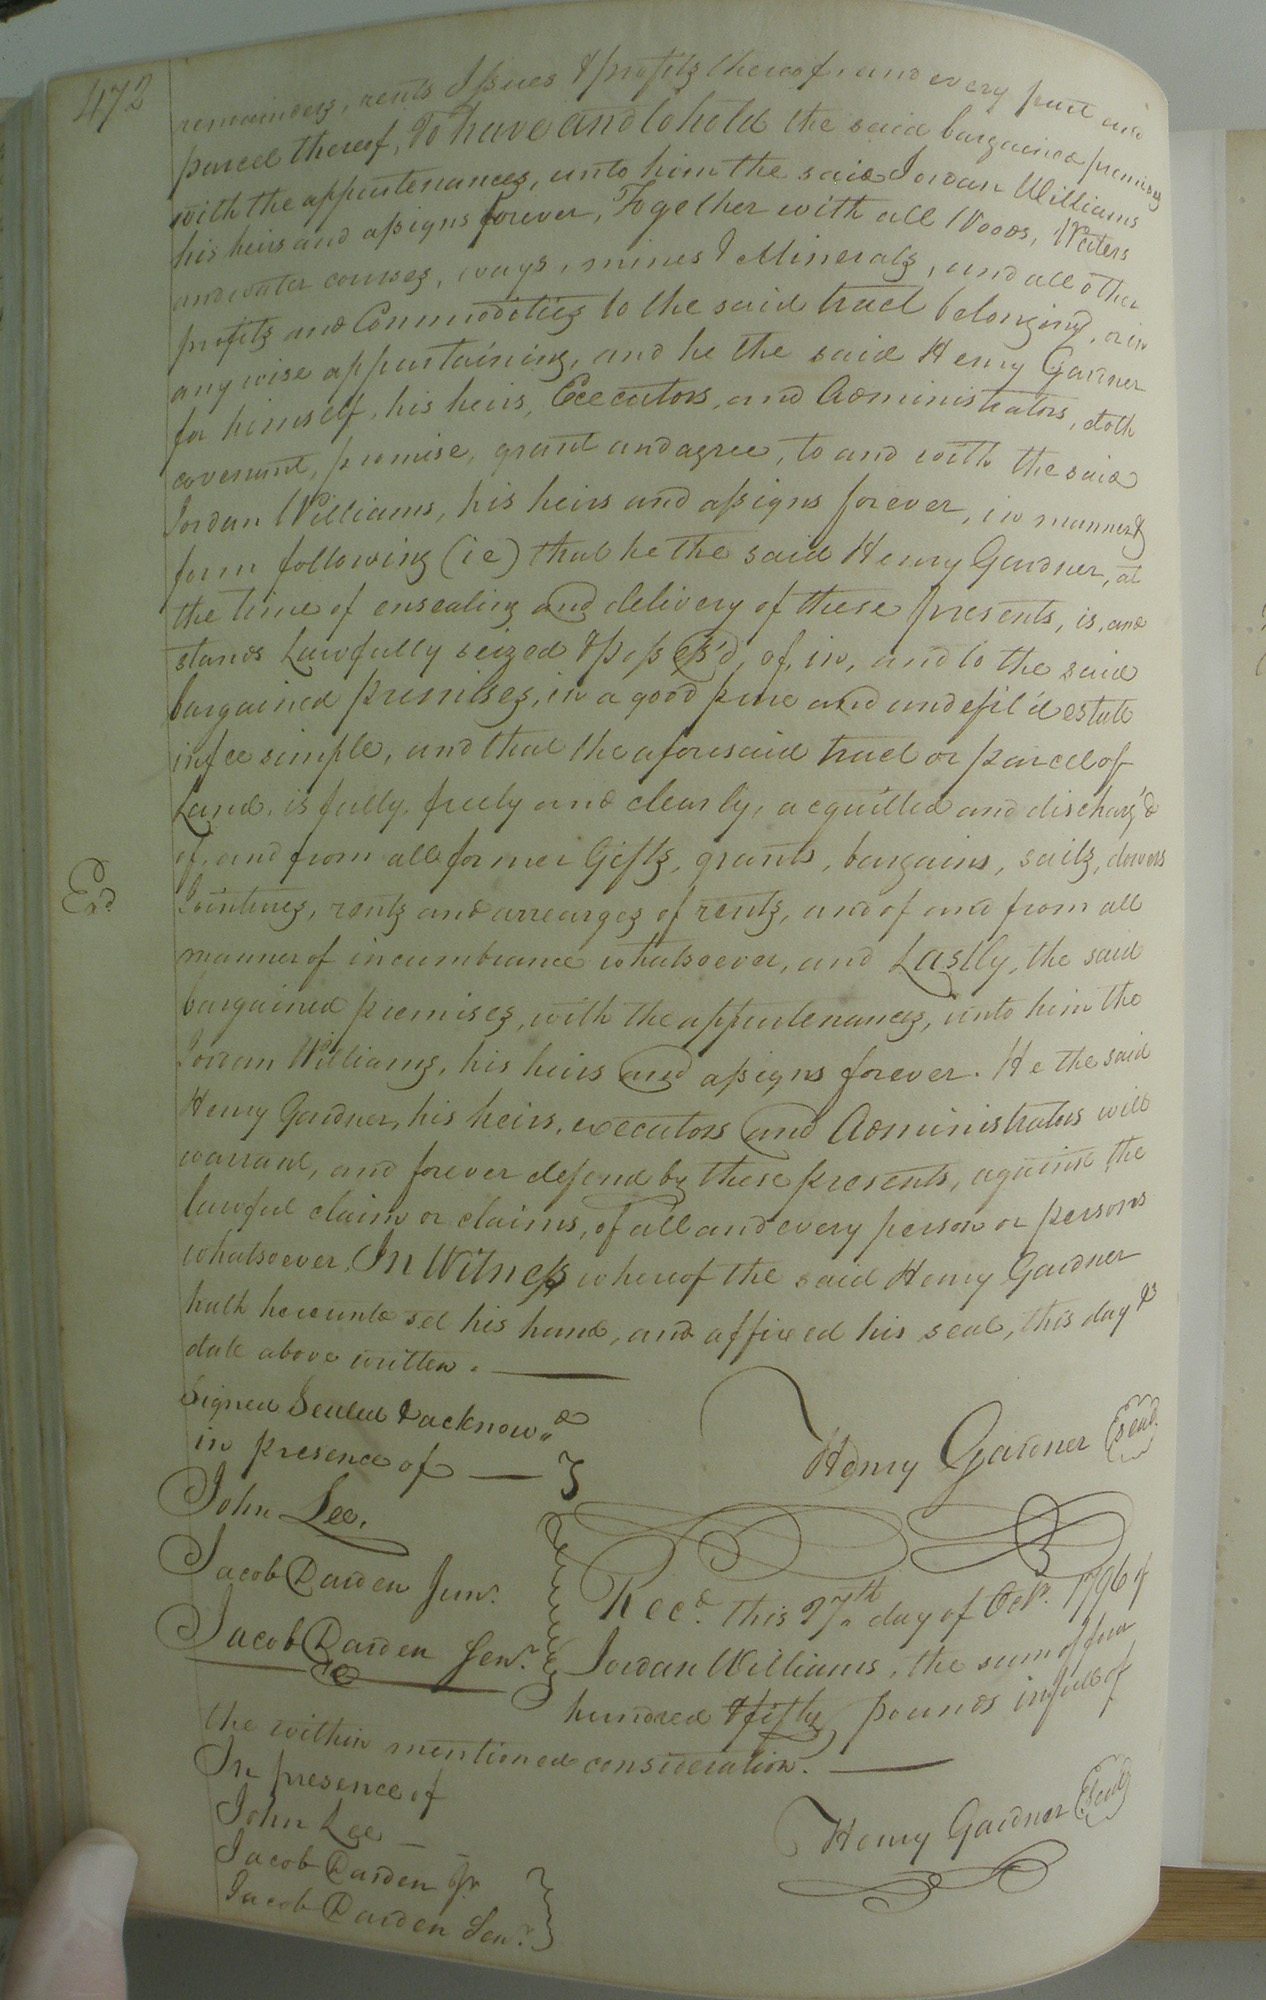 472
remainders, rents Issues & profits thereof, and every part and
parcel thereof, To have and to hold the said bargained premises
with the appurtenances, unto him the said Jordan Williams
his heirs and assigns forever, Together with all Woods, Waters
and water courses, ways, mines & Minerals, and all other
profits and Commodities to the said tract belonging, or in
any wise appurtaining, and he the said Henry Gardner
for himself, his heirs, Executors, and Administrators, doth
covenant, promise, grant and agree, to and with the said
Jordan Williams, his heirs and assigns forever, in manner &
form following (ie) that he the said Henry Gardner, at
the time of ensealing and delivery of these presents, is, and
stands Lawfully seized & possess'd, of, in, and to the said
bargained premises, in a good pure and undefil'd estate
in fee simple, and that the aforesaid tract or parcel of
Land, is fully, freely and clearly, acquitted and discharg'd
of, and from all former Gifts, grants, bargains, sails, dowers
Jointures, rents and arrearges of rents, and of and from all
Exd.
manner of incumbrance whatsoever, and Lastly, the said
bargained premises, with the appurtenances, unto him the
Jordan Williams, his heirs and assigns forever. He the said
Henry Gardner, his heirs, executors and Administrators will
warrant, and forever defend by these presents, against the
lawful claim or claims, of all and every person or persons
whatsoever. In Witness whereof the said Henry Gardner
hath hereunto set his hand, and affixed his seal, this day &
date above written.
Signed Sealed & acknow.d
in presence of
Henry Gardner Seal
John Lee.
Jacob Darden Junr.
Jacob Darden Senr.
Recd. this 27th day of Octr. 1796 of
Jordan Williams, the sum of four
hundred & fifty pounds in full of
the within mentioned consideration.
In presence of
John Lee
Henry Gardner Seal
Jacob Darden Jr
Jacob Darden Senr.